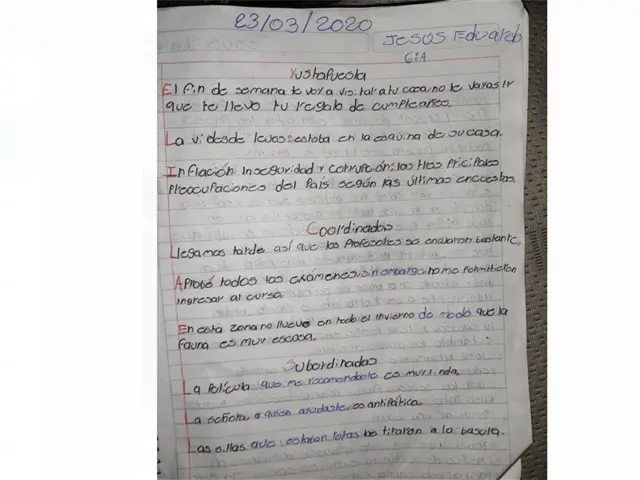 23/03/2020
Jesús Eduardo
6:A
Yustapuesta
El fin de semana te voy a visitar a tu casa, no te vayas ir
que te llevo tu regalo de cumpleaños.
La vi desde lejos: estaba en la esquina de su casa.
Inflación, Inseguridad y corrupción: las tres pricipales
Preocupaciones del País según las últimas encuestas.
Coordinadas
Llegamos tarde así que los Profesores se enojaron bastante.
Aprobé todos los exámenes sin embargo no me permitieron
ingresar al curso.
En esta zona no llueve en todo el invierno de modo que la
fauna es muy escasa.
Subordinadas
La Película que me recomendaste es muy linda.
La señora, a quien ayudaste, es antipática.
Las sillas que estaban rotas las tiraron a la basura.